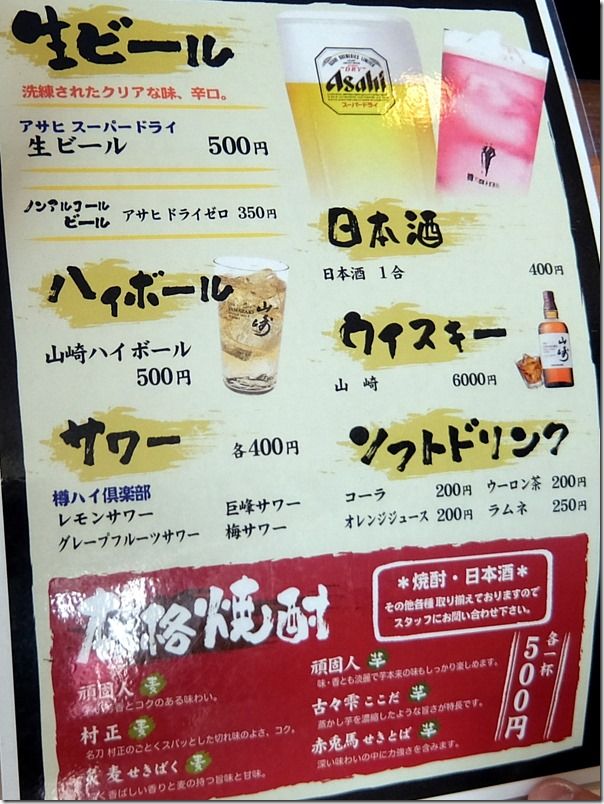 生ビール
洗練されたクリアな味、辛口。
アサヒ スーパードライ
生ビール 500円
ノンアルコール
ビール アサヒドライゼロ 350円
DRY
Asahi
スーパードライ
ハイボール
山崎
YAMAZAKI
山崎ハイボール
500円
日本酒
日本酒 1合 400円
ウイスキー
山崎
山 崎 6000円
サワー 各400円
樽ハイ倶楽部
レモンサワー 巨峰サワー
グレープフルーツサワー 梅サワー
ソフトドリンク
コーラ 200円 ウーロン茶 200円
オレンジジュース 200円 ラムネ 250円
本格焼酎
*焼酎・日本酒*
その他各種 取り揃えておりますので
スタッフにお問い合わせ下さい。
各一杯
500円
頑固人 麦
香とコクのある味わい。
村正 麦
名刀 村正のごとくスパッとした切れ味のよさ、コク。
麦 せきばく 麦
ばしい香りと麦の持つ旨味と甘味。
頑固人 芋
味・香とも淡麗で芋本来の味もしっかり楽しめます。
古々雫 ここだ 芋
蒸かし芋を濃縮したような旨さが特長です。
赤兎馬 せきとば 芋
深い味わいの中に力強さを含みます。